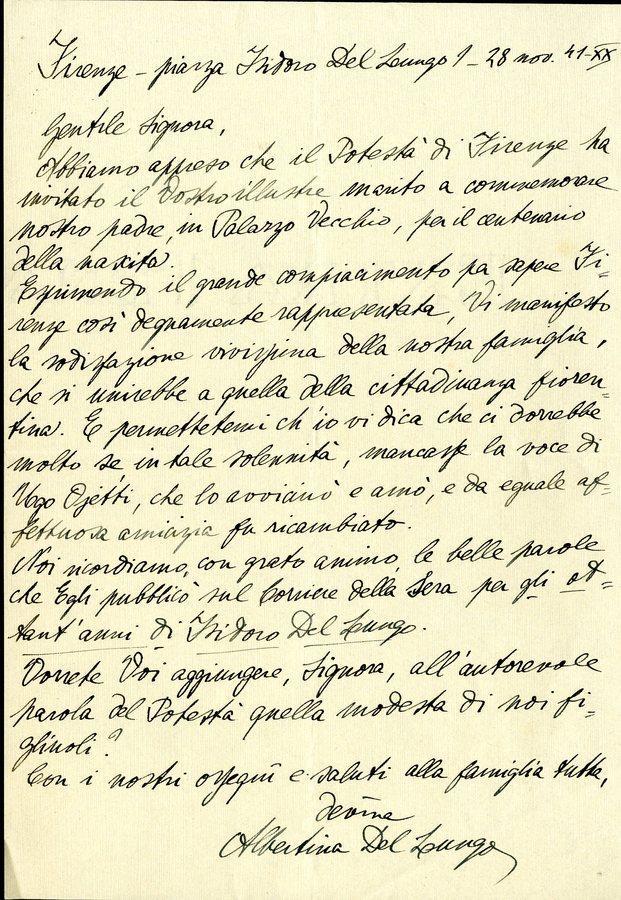 Firenze - piazza Isidoro Del Lungo 1 - 28 nov. 41-XX
Gentile Signora,
Abbiamo appreso che il Potestà di Firenze ha
invitato il Vostro illustre marito a commemorare
nostro padre, in Palazzo Vecchio, per il centenario
della nascita.
Esprimendo il grande compiacimento pa sapere Fi-
renze così degnamente rappresentata, Vi manifesto
la sodisfazione vivissima della nostra famiglia,
che si unirebbe a quella della cittadinanza fioren-
tina. E permettetemi ch'io vi dica che ci dorrebbe
molto se, in tale solennità, mancasse la voce di
Ugo Ojetti, che lo avvicinò e amò, e da eguale af-
fettuosa amicizia fu ricambiato.
Noi ricordiamo, con grato animo, le belle parole
che Egli pubblicò sul Corriere della Sera per gli ot-
tant'anni di Isidoro Del Lungo.
Vorrete Voi aggiungere, Signora, all'autorevole
parola del Potestà quella modesta di noi fi-
gliuoli?
Con i nostri ossequii e saluti alla famiglia tutta,
dev̄ma
Albertina Del Lungo